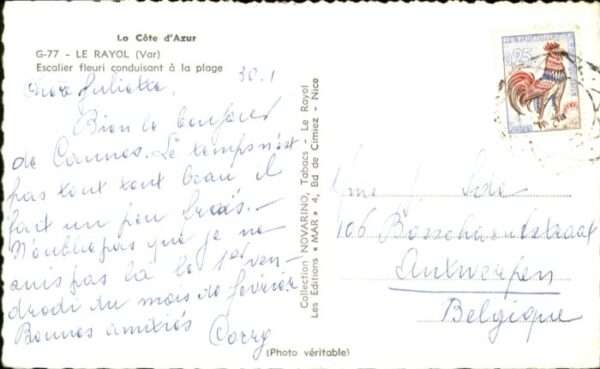 La Côte d'Azur
G-77 - LE RAYOL (Var)
Escalier fleuri conduisant à la plage
30.1
Chère Juliette,
Bien le bonjour
de Cannes. Le temps n'est
pas tout tout beau il
fait un peu
N'oublie pas que je ne
suis pas là le 1er ven-
dredi du mois de février
Bonnes amitiés
Corry
Collection NOVARINO, Tabacs - Le Rayol
Les Editions "MAR" 4, Bd de Cimiez - Nice
(Photo véritable)
Mme J.
106 Bosschaertstraat
Antwerpen
Belgique